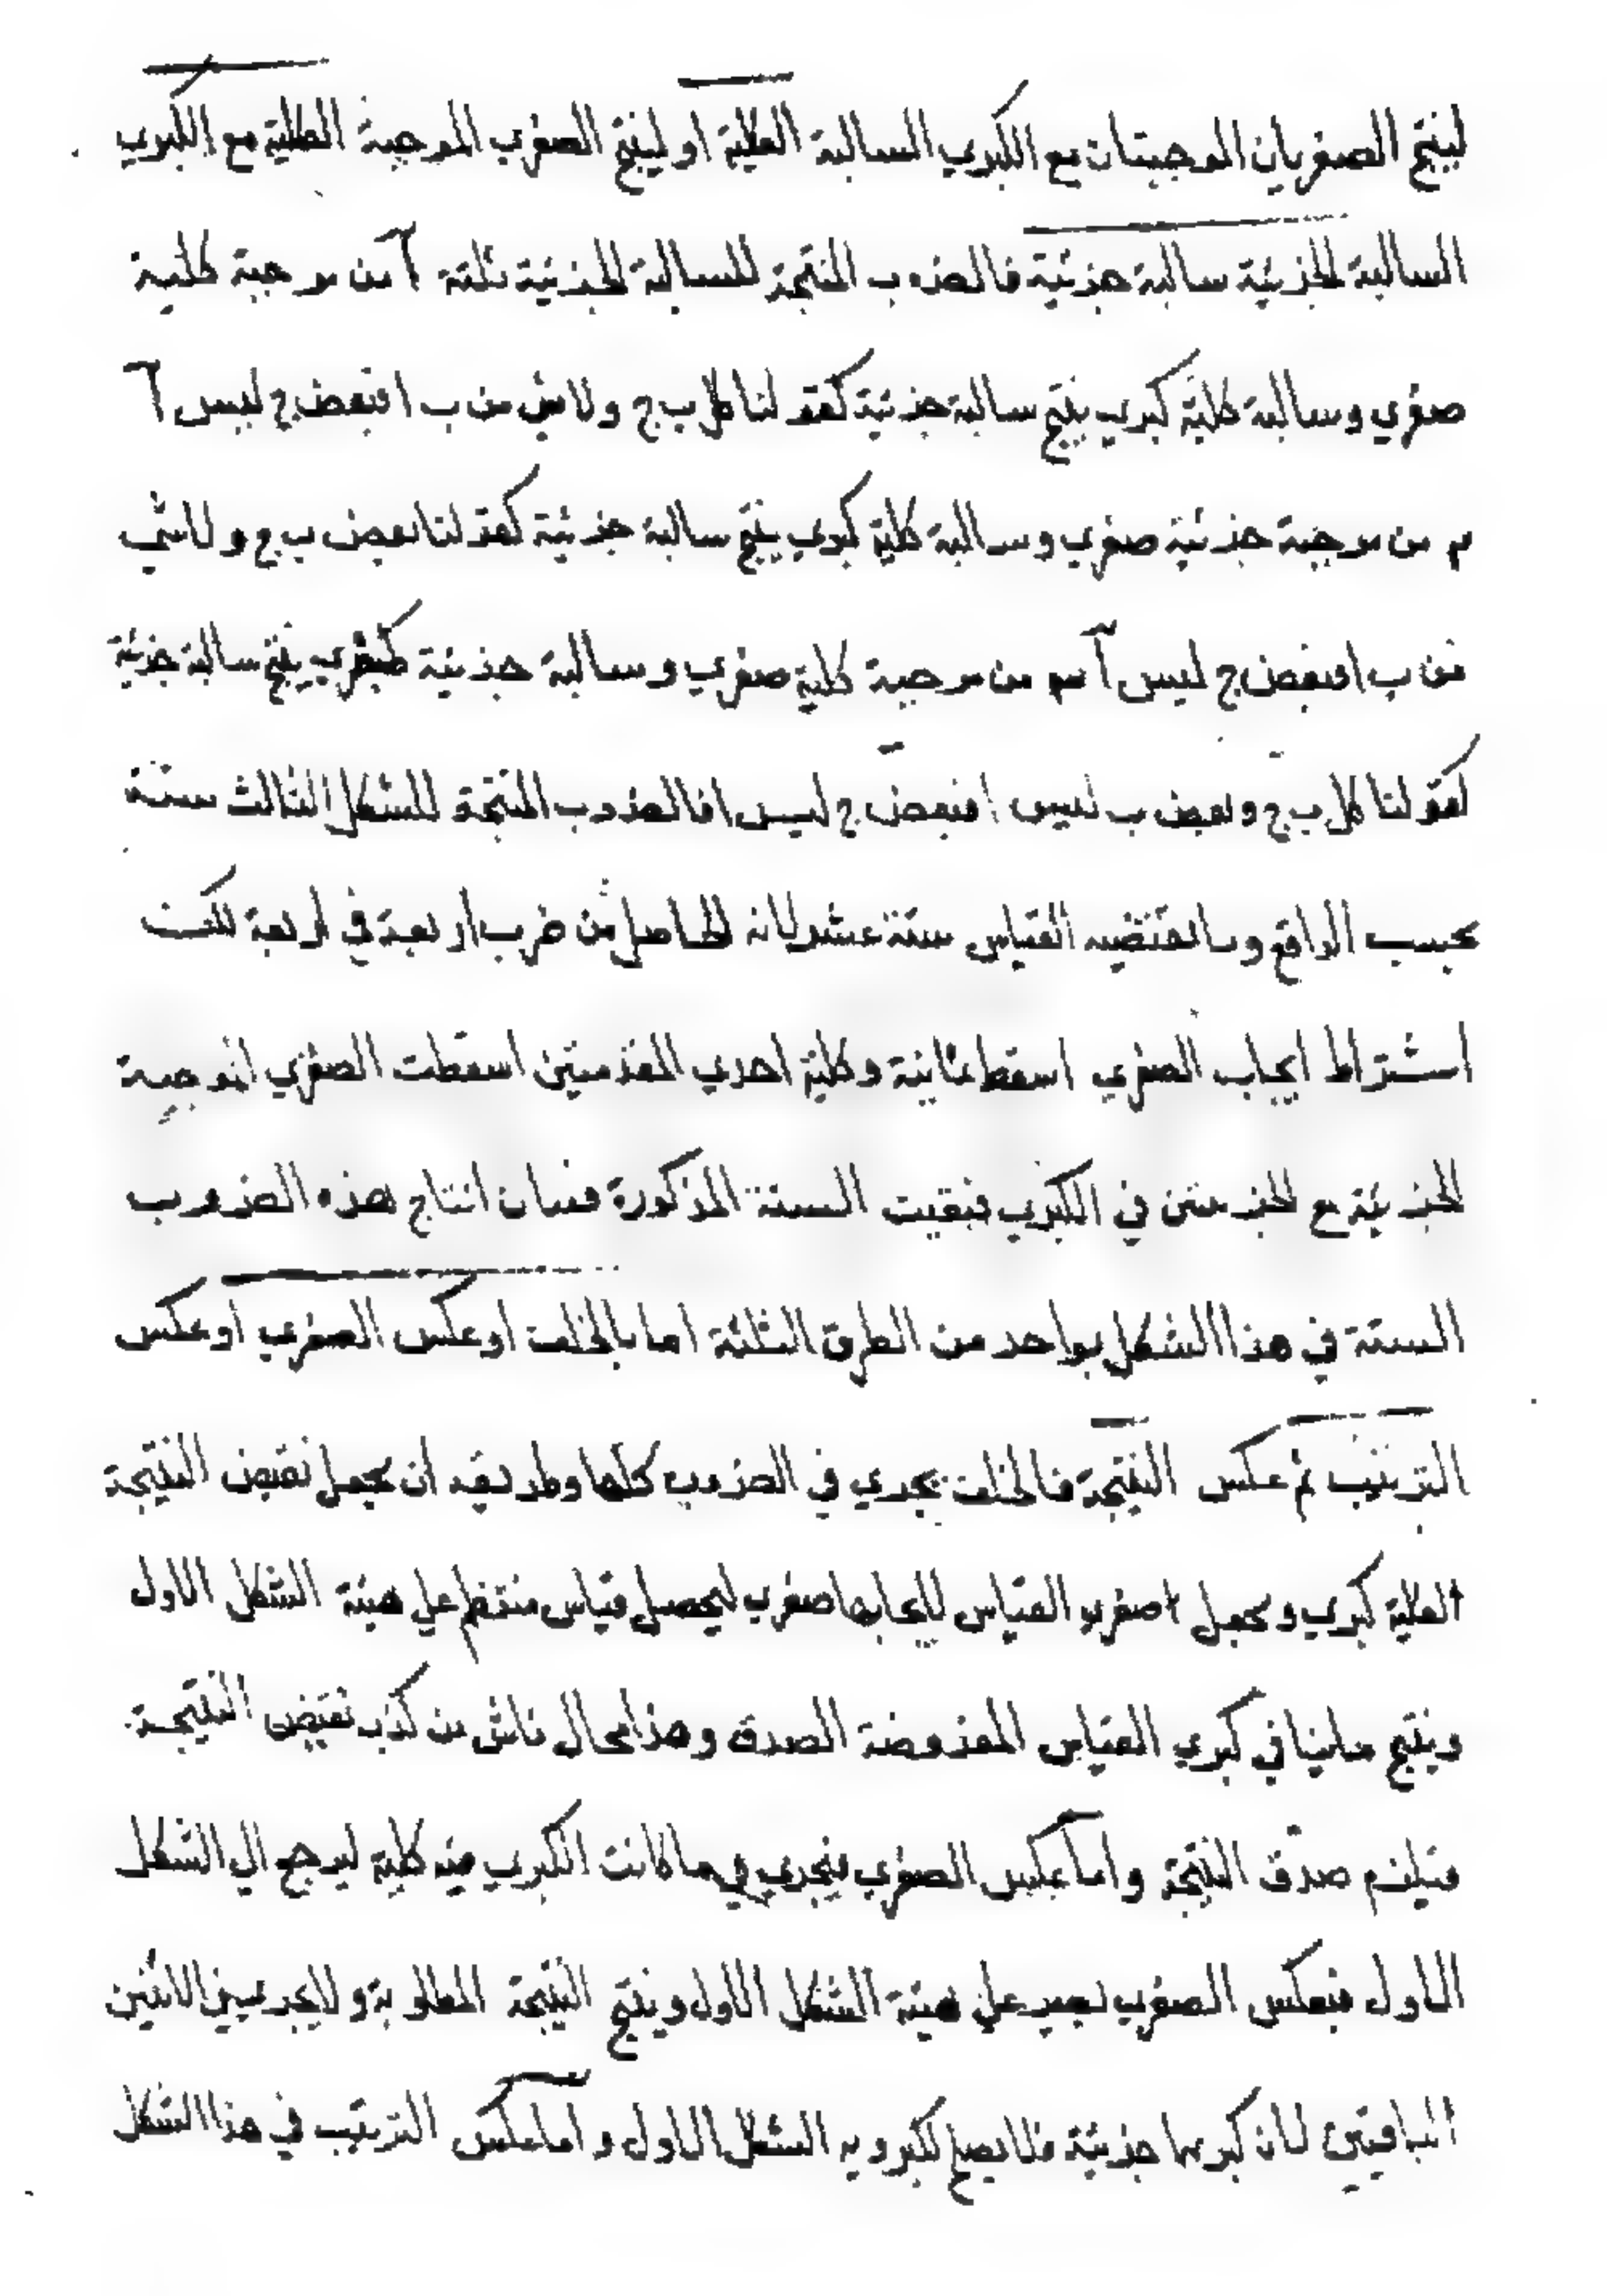 لينتج الصغريان الموجبتان مع الكبري السالبة الكلية او لينتج الصغري الموجبة الكلية مع الكبري
السالبة الجزئية سالبة جزئية فالضروب المنتجة للسالبة الجزئية ثلثة آ من موجبة كلية
صغري وسالبة كلية كبري ينتج سالبة جزئية كقولنا كل ب ج ولاشئ من ب ا فبعض ج ليس آ
م من موجبة جزئية صغري وسالبة كلية كبري ينتج سالبة جزئية كقولنا بعض ب ج ولاشئ
من ب ا فبعض ج ليس آ سم من موجبة كلية صغري وسالبة جزئية كبري ينتج سالبة جزئية
كقولنا كل ب ج وبعض ب ليس ا فبعض ج ليس ا فالضروب المنتجة للشكل الثالث ستة
بحسب الواقع وما يقتضيه القياس ستة عشر لانه الحاصل من ضرب اربعة في اربعة لكن
اشتراط ايجاب الصغري اسقط ثمانية وكلية احدي المقدمتين اسقطت الصغري الموجبة
الجزئية مع الجزئيتين في الكبري فبقيت الستة المذكورة فبيان انتاج هذه الضروب
الستة في هذا الشكل بواحد من الطرق الثلثة اما بالخلف او عكس الصغري او عكس
الترتيب ثم عكس النتيجة فالخلف يجري في الضروب كلها وطريقه ان يجعل نقيض النتيجة
الكلية كبري ويجعل صغري القياس لايجابها صغري ليحصل قياس منتظم علي هيئة الشكل الاول
وينتج ما ينافي كبري القياس المفروضة الصدق وهذا محال ناش من كذب نقيض النتيجة
فيلزم صدق النتيجة واما عكس الصغري فيجري في ما كانت الكبري فيه كلية ليرجع الي الشكل
الاول فبعكس الصغري يصير علي هيئة الشكل الاول وينتج النتيجة المطلوبة ولايجري في الاثنين
الباقيين لان كبريهما جزئية فلا يصلح لكبروية الشكل الاول واما عكس الترتيب في هذا الشكل